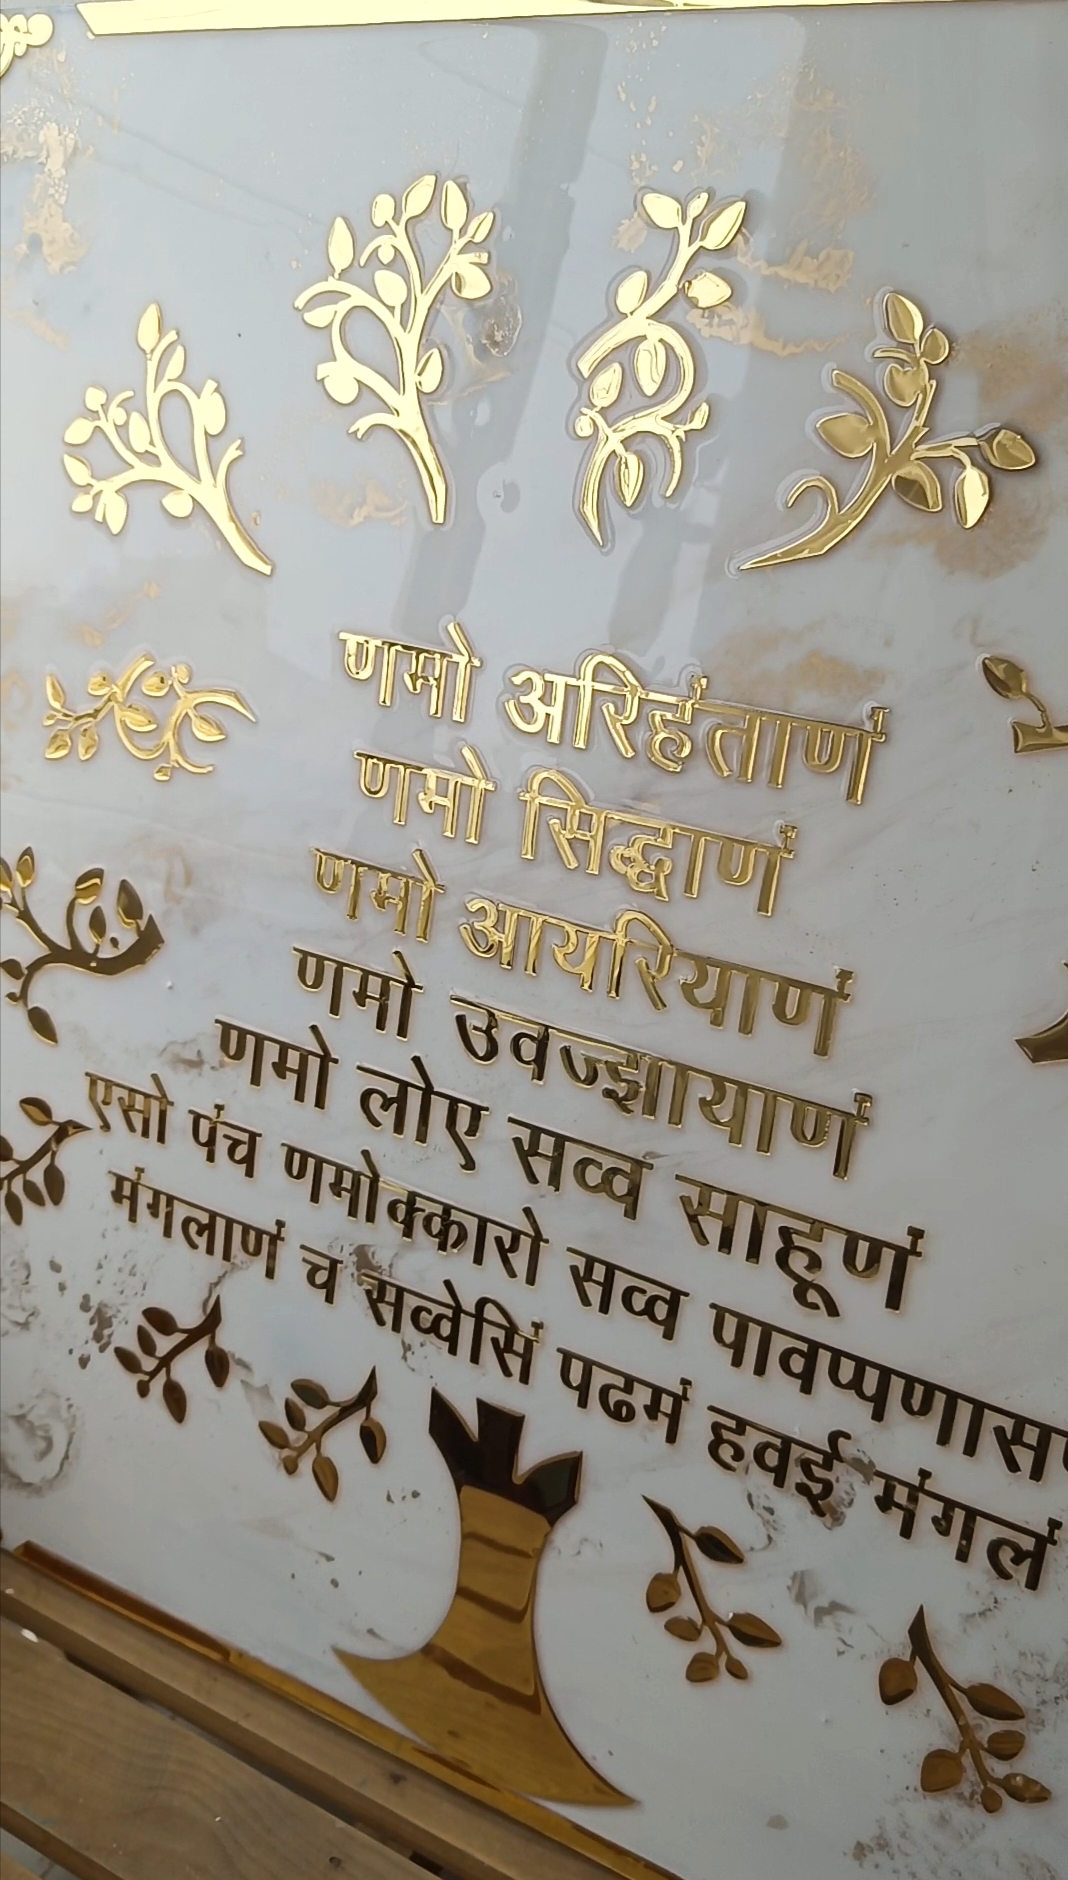 णमो अरिहंताणं
णमो सिद्धाणं
णमो आयरियाणं
णमो उवज्झायाणं
णमो लोए सव्व साहूणं
एसो पंच णमोक्कारो सव्व
मंगलाणं च सव्वेसिं पढमं हवई मंगलं